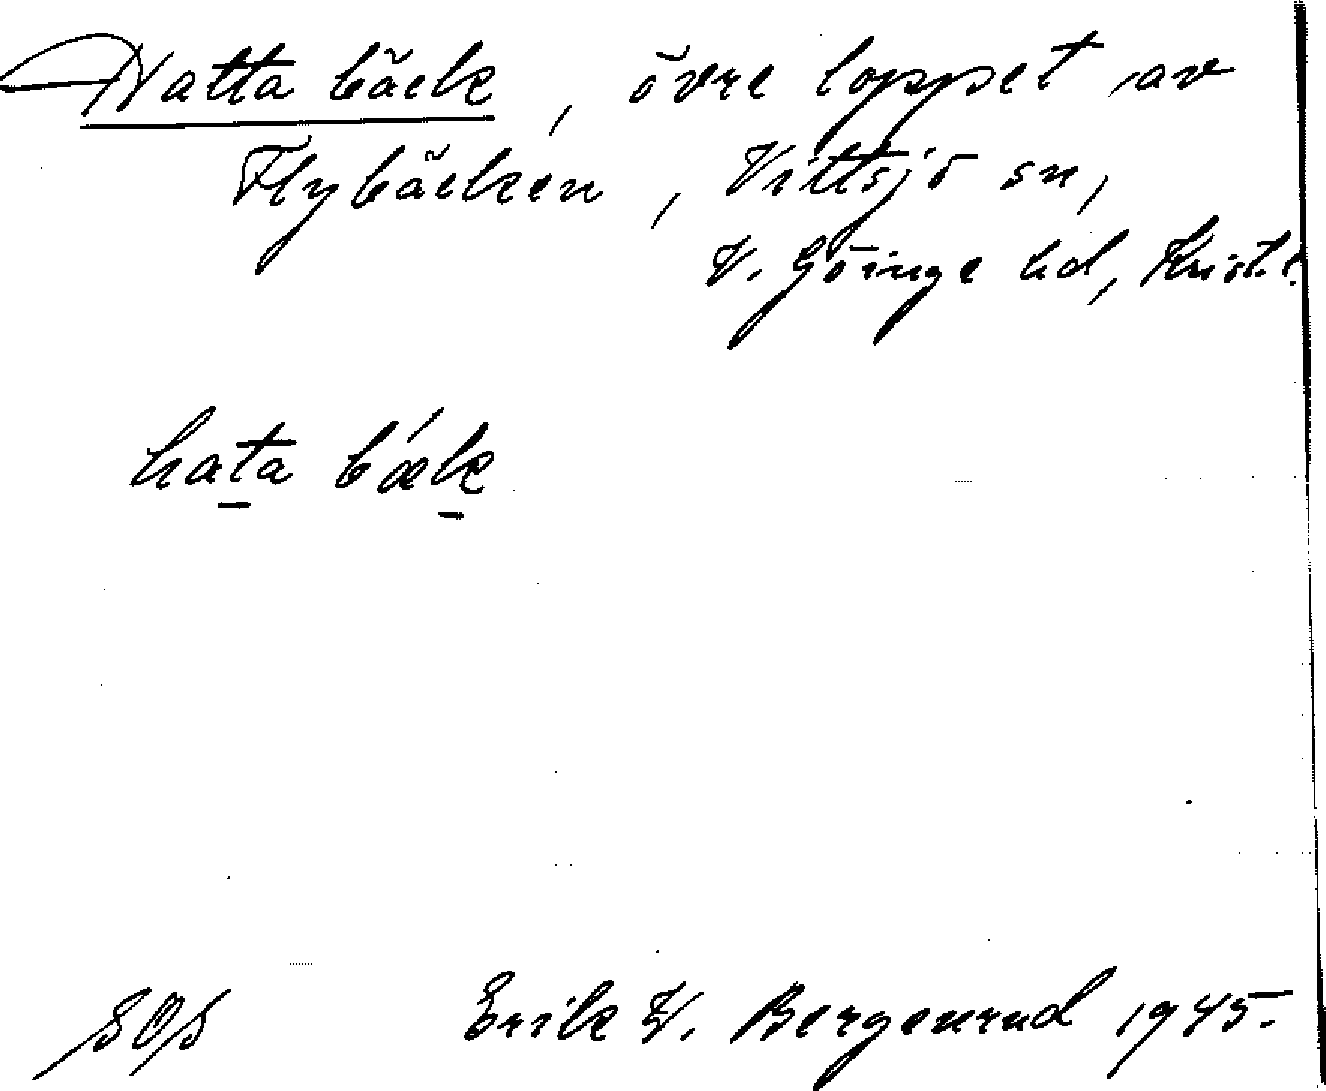 Hatta bäck, övre loppet av
Flybäcken, Vittsjö sn,
V. Göinge hd, Krist. l.
hata bǽk
SOS Erik W. Bergenrud 1945.